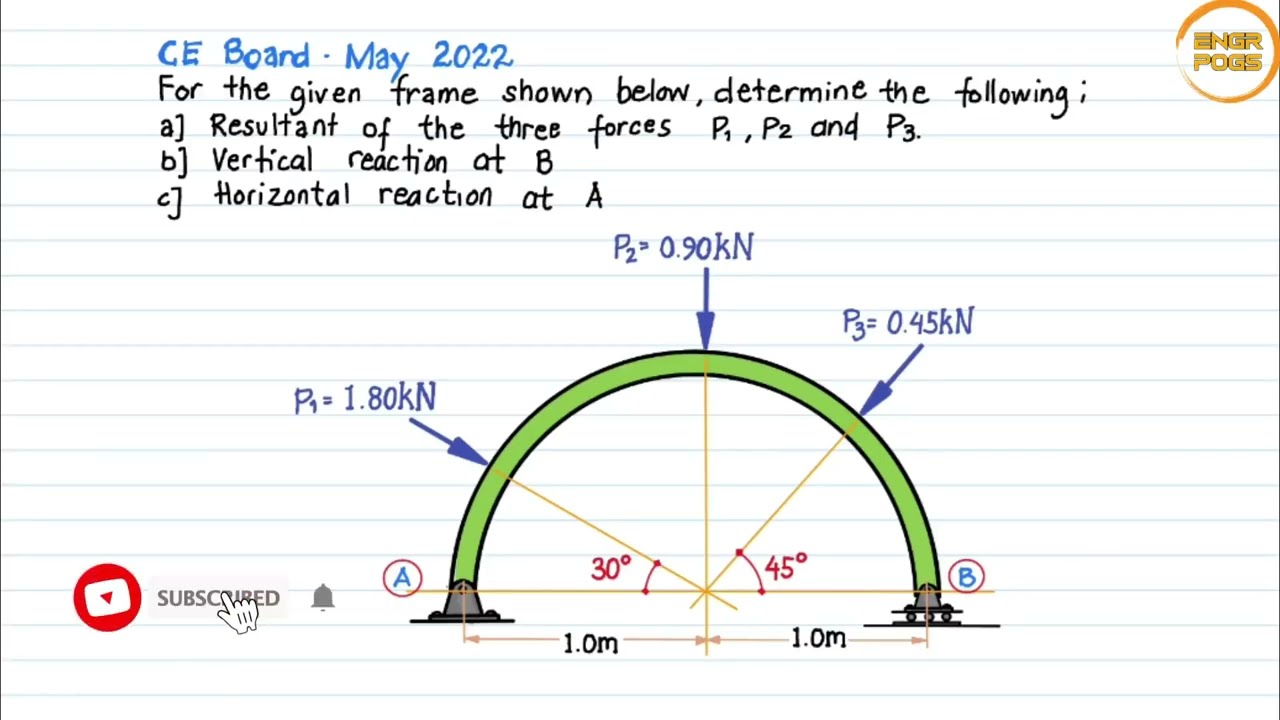 ENGR
POGS
CE Board · May 2022
For the given frame shown below, determine the following;
a] Resultant of the three forces P₁, P₂ and P₃.
b] Vertical reaction at B
c] Horizontal reaction at A
P₂= 0.90kN
P₃= 0.45kN
P₁= 1.80kN
30°
45°
A
B
SUBSCRIBED
1.0m
1.0m